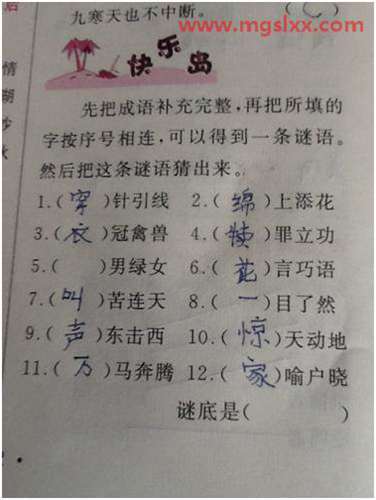 www.mgslxx.com
九寒天也不中断。 ( )
情
快乐岛
先把成语补充完整,再把所填的
字按序号相连,可以得到一条谜语。
然后把这条谜语猜出来。
1.(穿)针引线 2.(绵)上添花
3.(衣)冠禽兽 4.(赎)罪立功
5.( )男绿女 6.(花)言巧语
7.(叫)苦连天 8.(一)目了然
9.(声)东击西 10.(惊)天动地
11.(万)马奔腾 12.(家)喻户晓
谜底是( )